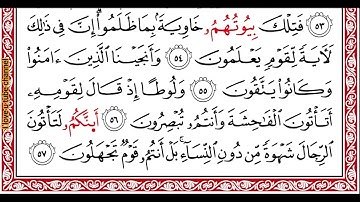 ٥٣ فَتِلْكَ بِيُوتُهُمُۥ خَاوِيَةَۢ بِمَا ظَلَمُوٓا۟ إِنَّ فِى ذَٰلِكَ
لَأٓيَةً لِّقَوْمٍ يَعْلَمُونَ ٥٤ وَأَنجَيْنَا ٱلَّذِينَ ءَامَنُوا۟
وَكَانُوا۟ يَتَّقُونَ ٥٥ وَلُوطًا إِذْ قَالَ لِقَوْمِهِۦٓ
أَتَأْتُونَ ٱلْفَٰحِشَةَ وَأَنتُمُۥ تُبْصِرُونَ ٥٦ أَٮِٕنَّكُمُۥ لَتَأْتُونَ
ٱلرِّجَالَ شَهْوَةً مِّن دُونِ ٱلنِّسَآءِ بَلْ أَنتُمُۥ قَوْمٌ تَجْهَلُونَ ٥٧